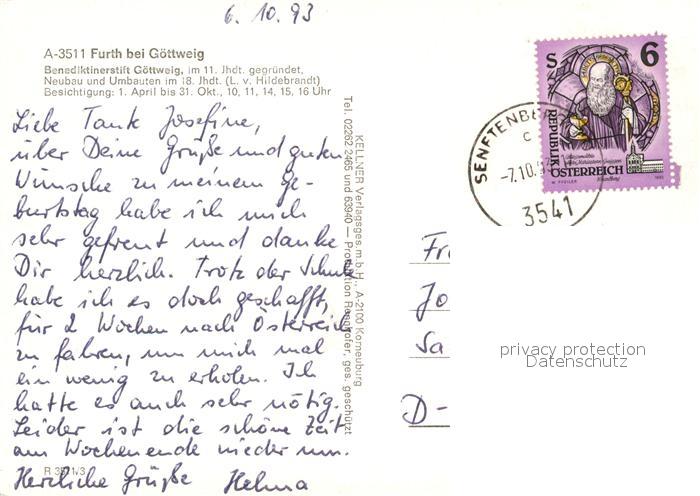 6.10.93
A-3511 Furth bei Göttweig
Benediktinerstift Göttweig, im 11. Jhdt. gegründet,
Neubau und Umbauten im 18. Jhdt. (L. v. Hildebrandt)
Besichtigung: 1. April bis 31. Okt., 10, 11, 14, 15, 16 Uhr
Liebe Tante Josefine,
über Deine Grüße und guten
Wünsche zu meinem Ge-
burtstag habe ich mich
sehr gefreut und danke
Dir herzlich. Trotz der Schule
habe ich es doch geschafft,
für 2 Wochen nach Österreich
zu fahren, um mich mal
ein wenig zu erholen. Ich
hatte es auch sehr nötig.
Leider ist die schöne Zeit
am Wochenende wieder um.
Herzliche Grüße Helma
KELLNER Verlagsges.m.b.H., A-2100 Korneuburg
Tel. 02262 2465 und 63940 — Produktion ges. geschützt
S 6
REPUBLIK
ÖSTERREICH
SENFTENBE
C
-7.10.9
3541
Fr
Jo
Sa
D-
privacy protection
Datenschutz